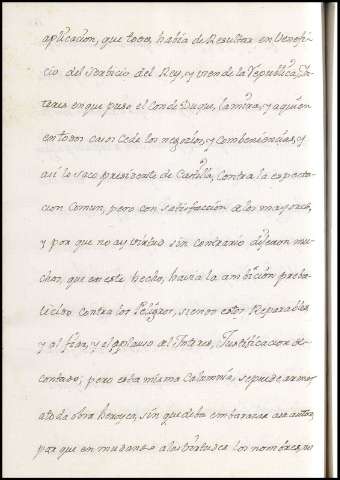 aplicacion, que todo, havia de Resultar en Venefi-
cio del Servicio del Rey, y vien de la Republica, In-
teres en que puso, el Conde Duque, la mira, y a quien
en todos casos cede los negocios, y combeniencias, y
asi le saco presidente de Castilla, contra la expecta-
cion Comun, pero con satisfaccion de los mayores,
y por que no ay virtud sin contrario dijeron mu-
chos, que en este hecho, havia la ambicion preba-
lecido contra los Peligros, siendo estos Reparables
y al fin, y el aplauso del Interes, Justificacion de
contado; pero esta misma Calumnia, se puede
a toda obra heroyca, sin que deba embarazar a su autor,
por que en mudando a las virtudes los nombres, no